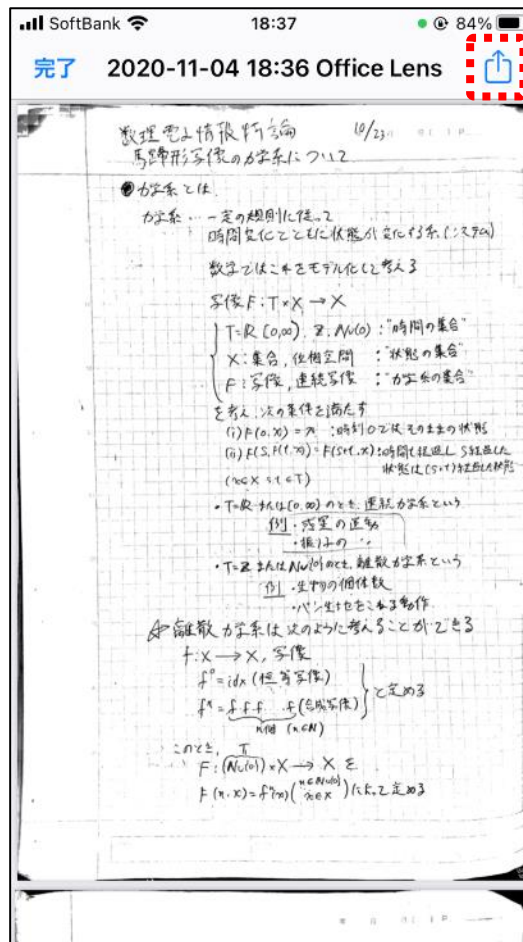 SoftBank 18:37 84%
完了 2020-11-04 18:36 Office Lens
数理電子情報特論 10/23
馬蹄形写像の力学系について
●力学系とは
力学系…一定の規則に従って
時間変化とともに状態が変化する系(システム)
数学ではこれをモデル化して考える
写像 F:T×X→X
T=R [0,∞), Z, N∪{0}:"時間の集合"
X:集合,位相空間:"状態の集合"
F:写像,連続写像:"力学系の集合"
を考え、次の条件を満たす
(i) F(0,x)=x :時刻0では、そのままの状態
(ii) F(s,F(t,x))=F(s+t,x):時間t経過し S経過した
状態は(s+t)経過した状態
(x∈X s,t∈T)
・T=R または[0,∞)のとき、連続力学系という
例・惑星の運動
・振り子の 〃
・T=Z または N∪{0}のとき、離散力学系という
例・生物の個体数
・パン生地をこねる動作
離散力学系は次のように考えることができる
f:X→X,写像
f⁰=idx(恒等写像)
fⁿ=f f f … f(合成写像) と定める
n個 (n∈N)
このとき、 T
F:(N∪{0})×X→X を
F(n,x)=fⁿ(x)(n∈N∪{0} x∈X)によって定める